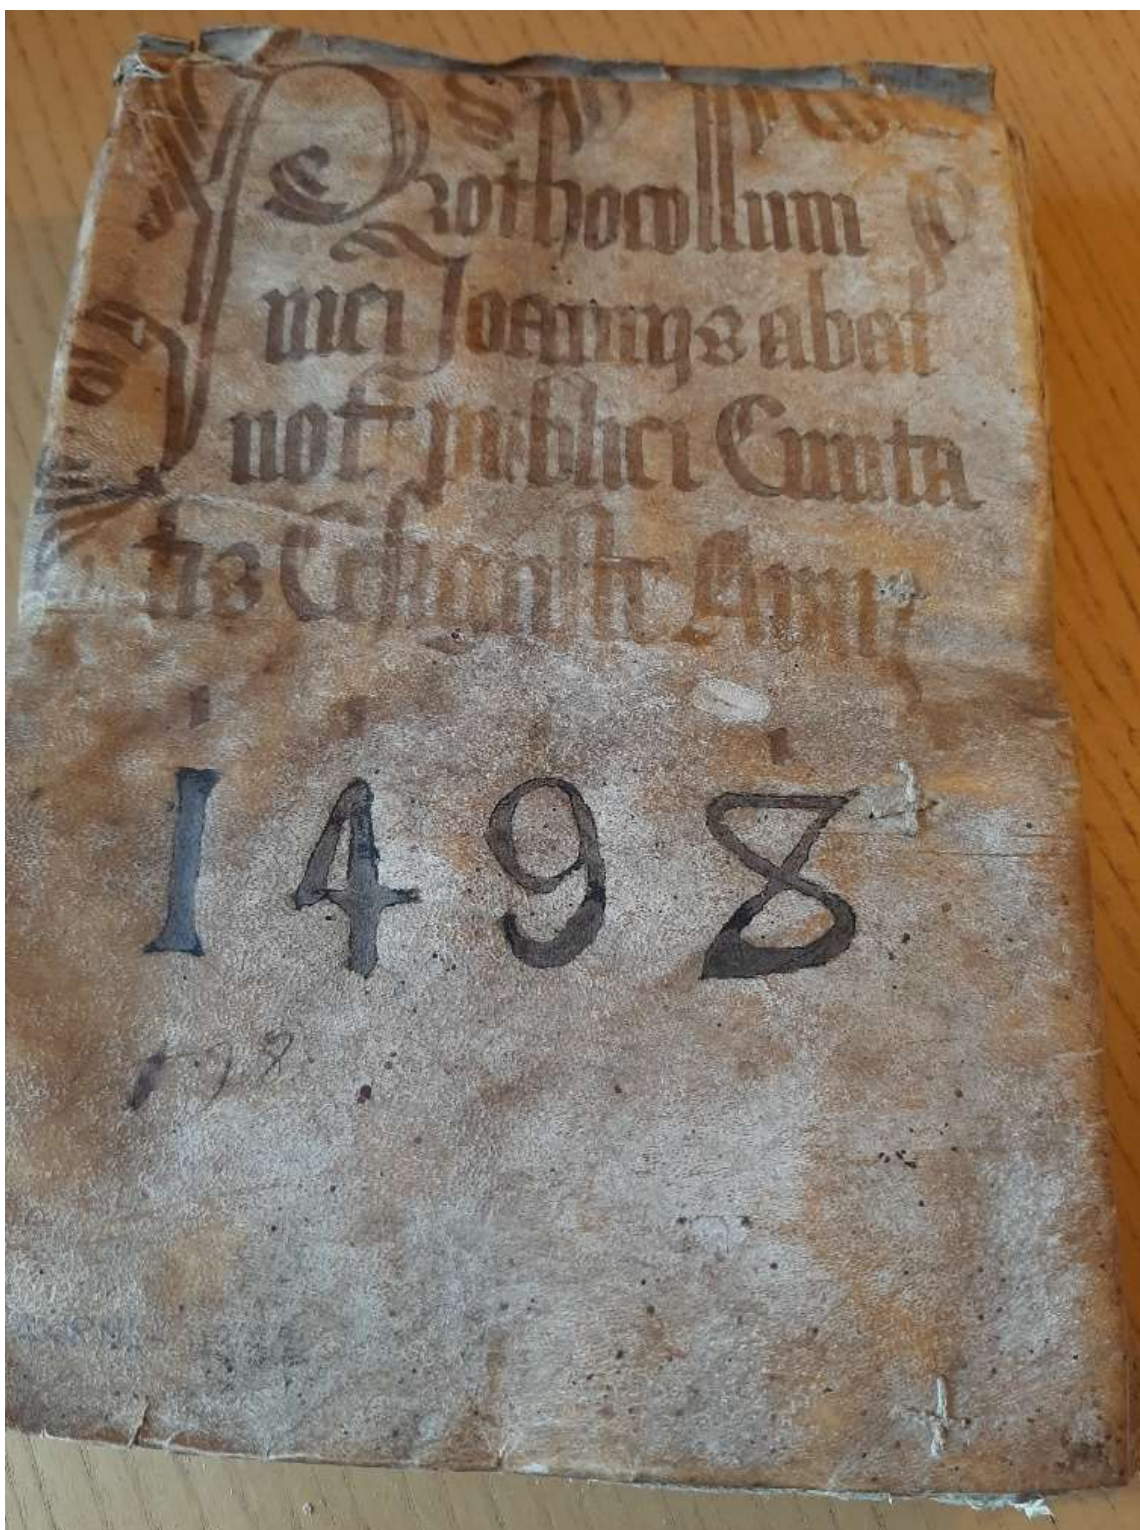 Prothocollum
mei Joannis abat
not publici Civita
tis Cesarauguste Anni
1498